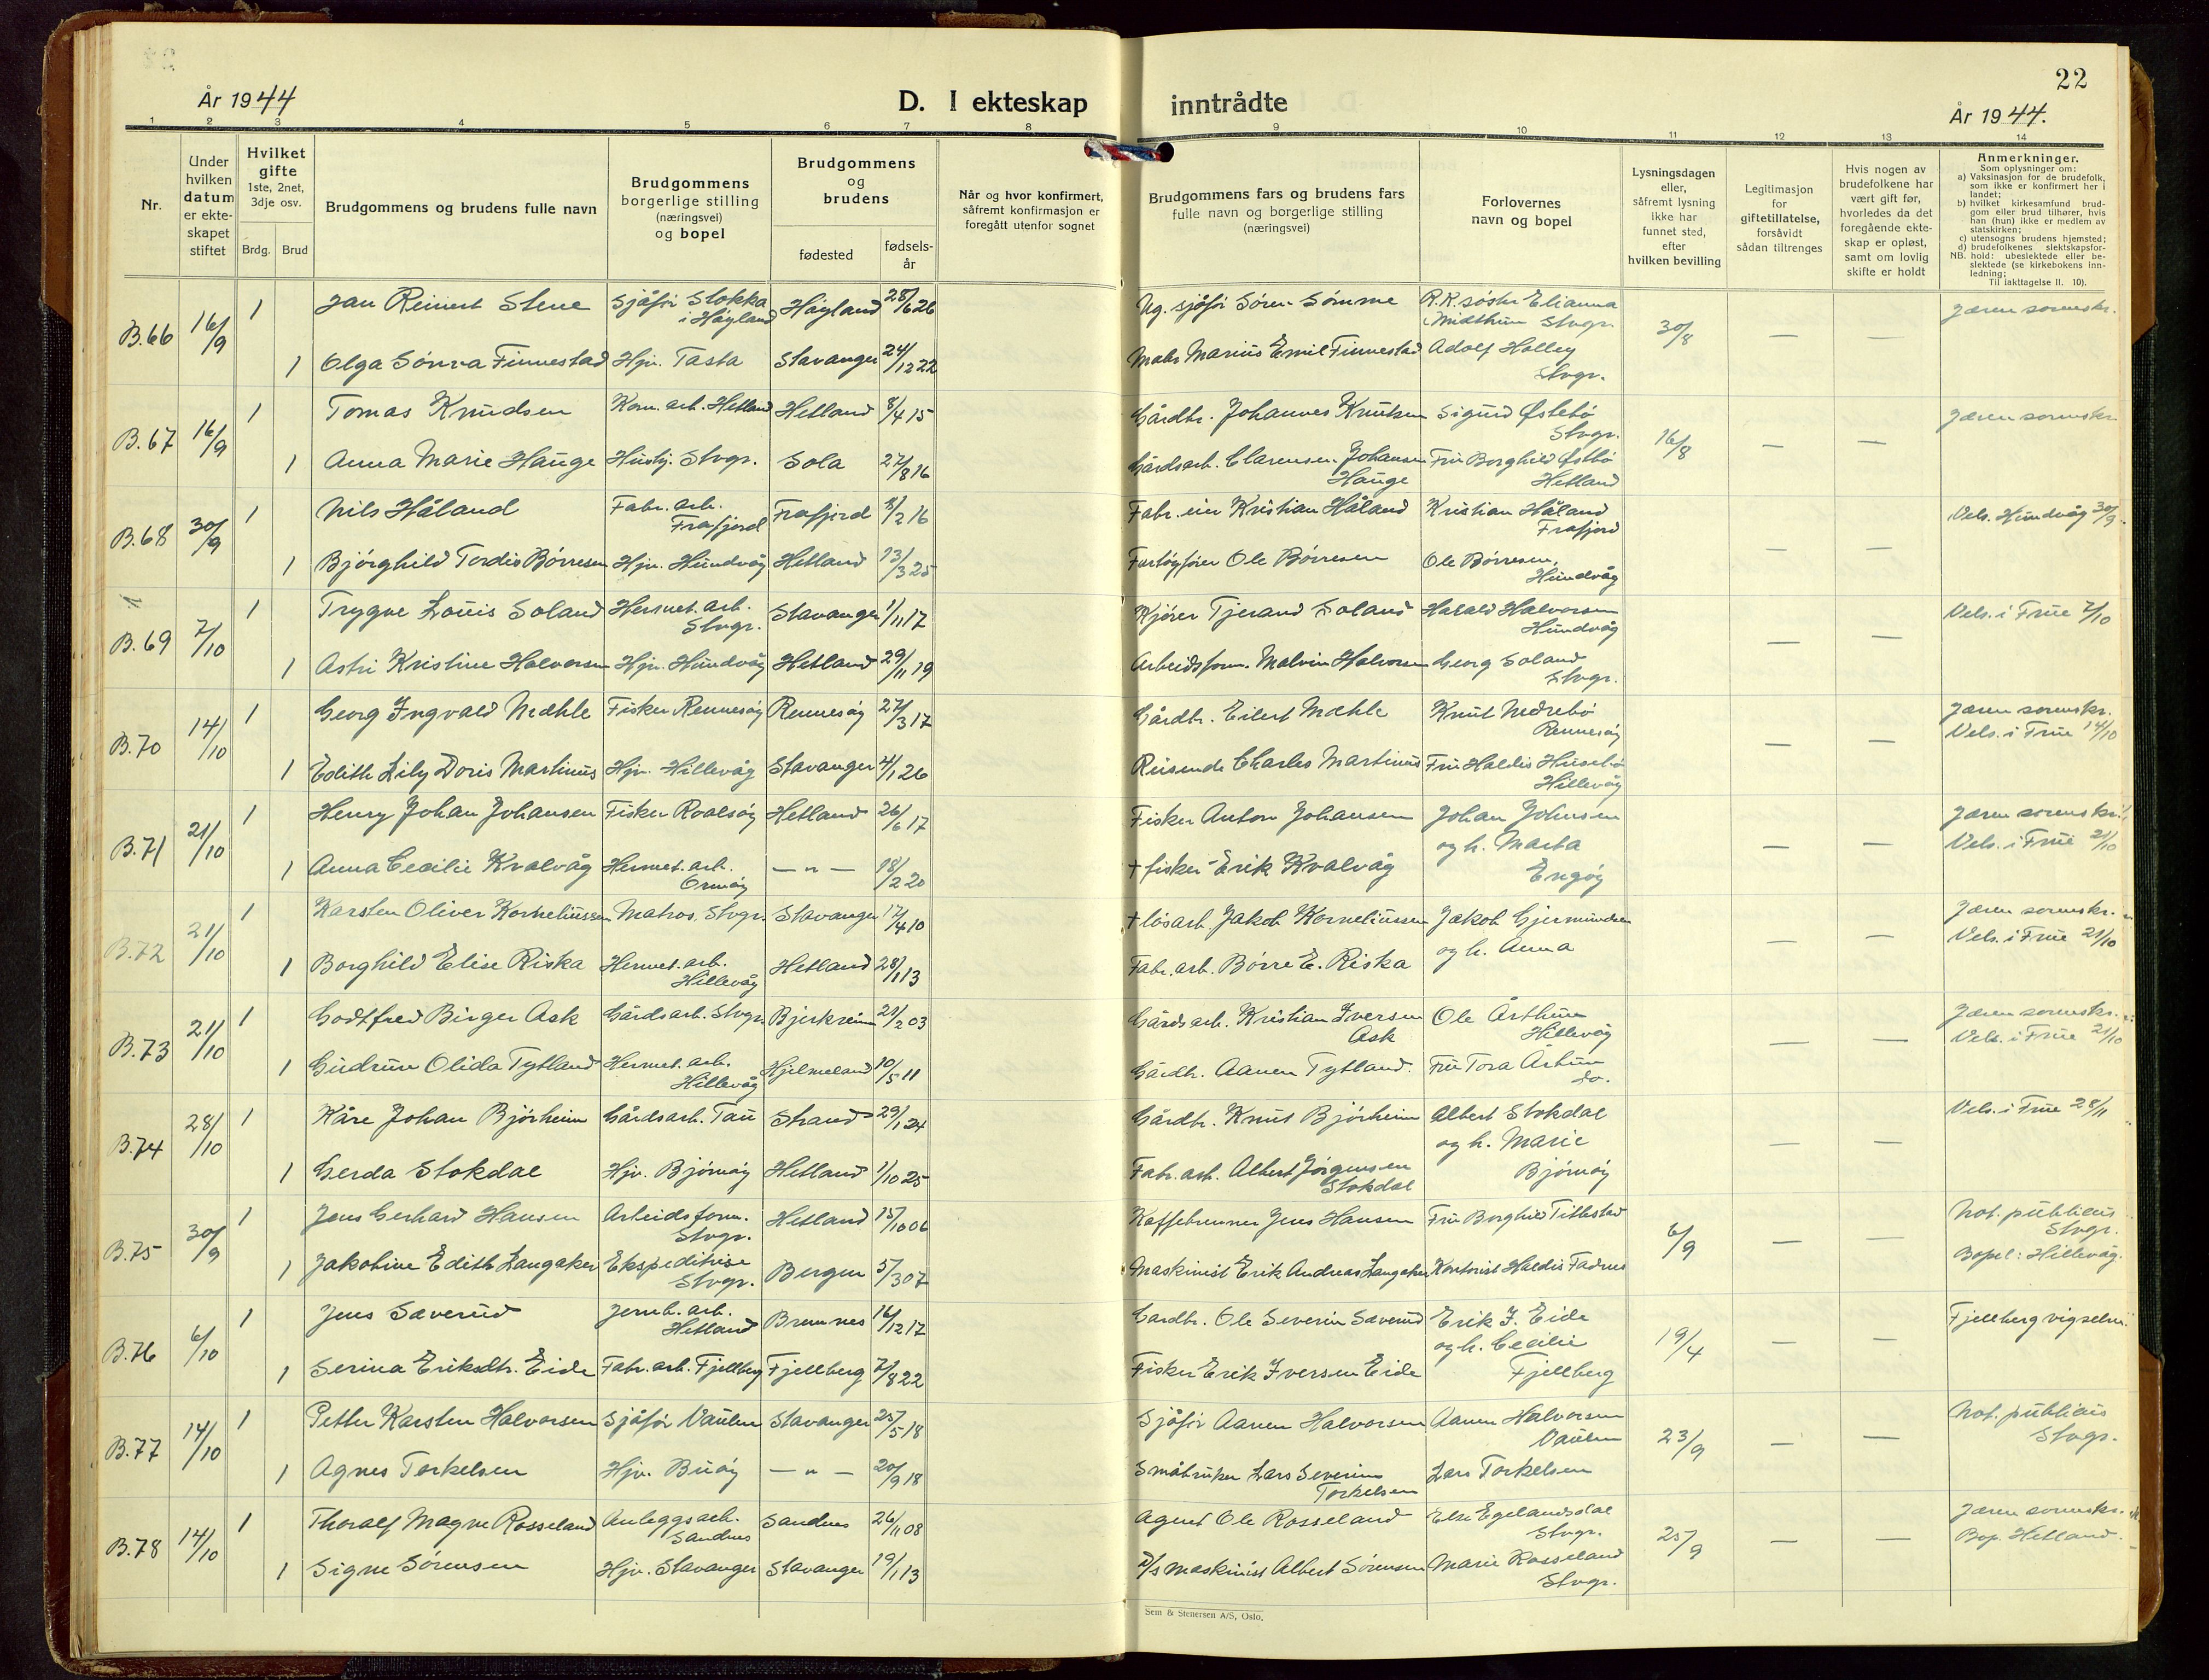 22
År 1944
D. I ekteskap inntrådte
År 1944.
1 2 3 4 5 6 7 8 9 10 11 12 13 14
Nr.
Under hvilken datum er ekteskapet stiftet
Hvilket gifte 1ste, 2net, 3dje osv.
Brdg. Brud
Brudgommens og brudens fulle navn
Brudgommens borgerlige stilling (næringsvei) og bopel
Brudgommens og brudens
fødested
fødsels-år
Når og hvor konfirmert, såfremt konfirmasjon er foregått utenfor sognet
Brudgommens fars og brudens fars fulle navn og borgerlige stilling (næringsvei)
Forlovernes navn og bopel
Lysningsdagen eller, såfremt lysning ikke har funnet sted, efter hvilken bevilling
Legitimasjon for giftetillatelse, forsåvidt sådan tiltrenges
Hvis nogen av brudefolkene har vært gift før, hvorledes da det foregående ekteskap er opløst, samt om lovlig skifte er holdt
Anmerkninger.
Som oplysninger om:
a) Vaksinasjon for de brudefolk, som ikke er konfirmert her i landet;
b) hvilket kirkesamfund brudgom eller brud tilhører, hvis han (hun) ikke er medlem av statskirken;
c) utensogns brudens hjemsted;
d) brudefolkenes slektskapsforhold: ubeslektede eller beslektede (se kirkebokens innledning;
NB.
Til iakttagelse II. 10).
B.66 16/9 1 Jan Reinert Stene Sjåfør Stokka i Høyland Høyland 28/6 26 Ug. sjåfør Sören Sömme R.K. søster Elianna Midthun Stvgr. 30/8 — — Jæren sorenskr.
1 Olga Sönva Finnestad Hjv. Tasta Stavanger 24/12 22 Marius Emil Finnestad Adolf Holley Stvgr.
B.67 16/9 1 Tomas Knudsen Kom. arb. Hetland Hetland 8/4 15 Gårdbr. Johannes Knutsen Sigurd Østebö Stvgr. 16/8 — — Jæren sorenskr.
1 Anna Marie Hauge Hushj. Stvgr. Sola 27/8 16 Gårdsarb. Clarensen Johansen Hauge Fru Borghild Östbö Hetland
B.68 30/9 1 Nils Håland Fabr. arb. Frafjord Frafjord 8/2 16 Fabr. eier Kristian Håland Kristian Håland Frafjord — — Vels. Hundvåg 30/9.
1 Bjørghild Tordis Børresen Hjv. Hundvåg Hetland 13/3 25 Fartøyfører Ole Børresen Ole Børresen, Hundvåg
B.69 7/10 1 Trygve Louis Soland Hermet. arb. Stvgr. Stavanger 1/11 17 Kjører Tjerand Soland Harald Halvorsen Hundvåg — — Vels. i Frue 7/10
1 Astri Kristine Halvorsen Hjv. Hundvåg Hetland 29/11 19 Arbeidsform. Malvin Halvorsen Georg Soland Stvgr.
B.70 14/10 1 Georg Ingvald Mæhle Fisker Rennesøy Rennesøy 27/3 17 Gårdbr. Eilert Mæhle Knut Nedrebö Rennesøy — — Jæren sorenskr. Vels. i Frue 14/10
1 Edith Lily Doris Martinus Hjv. Hillevåg Stavanger 4/1 26 Reisende Charles Martinus Fru Haldis Husebö Hillevåg
B.71 21/10 1 Henry Johan Johansen Fisker Roalsøy Hetland 26/6 17 Fisker Anton Johansen Johan Johnsen og h. Marta Engøy — — Jæren sorenskr. Vels. i Frue 21/10
1 Anna Cecilie Kvalvåg Hermet. arb. Ormøy — " — 18/2 20 † fisker Erik Kvalvåg
B.72 21/10 1 Karsten Oliver Korneliussen Matros, Stvgr. Stavanger 17/4 10 † løsarb. Jakob Korneliussen Jakob Gjermundsen og h. Anna — — Jæren sorenskr. Vels. i Frue 21/10
1 Borghild Elise Riska Hermet. arb. Hillevåg Hetland 28/1 13 Fabr. arb. Børre E. Riska
B.73 21/10 1 Godtfred Birger Ask Gårdsarb. Stvgr. Bjerkreim 21/2 03 Gårdsarb. Kristian Iversen Ask Ole Århus Hillevåg — — Jæren sorenskr. Vels. i Frue 21/10
1 Gudrun Olida Tytland Hermet. arb. Hillevåg Hjelmeland 10/5 11 Gårdbr. Aanen Tytland. Fru Tora do.
B.74 28/10 1 Kåre Johan Bjørheim Gårdsarb. Tau Strand 29/1 24 Gårdbr. Knut Bjørheim Albert Stokdal og h. Marie Bjørnøy — — Vels. i Frue 28/11
1 Gerda Stokdal Hjv. Bjørnøy Hetland 1/10 25 Fabr. arb. Albert Jørgensen Stokdal
B.75 30/9 1 Jens Gerhard Hansen Arbeidsform. Stvgr. Hetland 15/10 06 Kaffebrenner Jens Hansen Fru Borghild Tittestad 6/9 — — Not. publicus Stvgr. Bopel: Hillevåg.
1 Jakobine Edith Langaker Ekspeditrise Stvgr. Bergen 5/3 07 Maskinist Erik Andreas Langaker Kontorist Haldis Fadnes
B.76 6/10 1 Jens Sæverud Jernb. arb. Hetland Bremnes 16/12 17 Gardbr. Ole Severin Sæverud Erik I. Eide og h. Cecilie Fjellberg 19/4 — — Fjellberg vigselsr.
1 Serina Eriksdtr. Eide Fabr. arb. Fjellberg Fjellberg 7/8 22 Fisker Erik Iversen Eide
B.77 14/10 1 Petter Karsten Halvorsen Sjåfør Vaulen Stavanger 25/5 18 Sjåfør Aanen Halvorsen Aanen Halvorsen Vaulen 23/9 — — Not. publicus Stvgr.
1 Agnes Torkelsen Hjv. Buøy — " — 20/9 18 Småbruker Lars Severin Torkelsen Lars Torkelsen
B.78 14/10 1 Thoralf Magne Rosseland Anleggsarb. Sandnes Sandnes 26/11 08 Agent Ole Rosseland Else Egelandsdal Stvgr. 25/9 — — Jæren sorenskr. Bop. Hetland.
1 Signe Sørensen Hjv. Stavanger Stavanger 19/1 13 D/S maskinist Albert Sørensen Marie Rosseland Stvgr.
Sem & Stenersen A/S, Oslo.